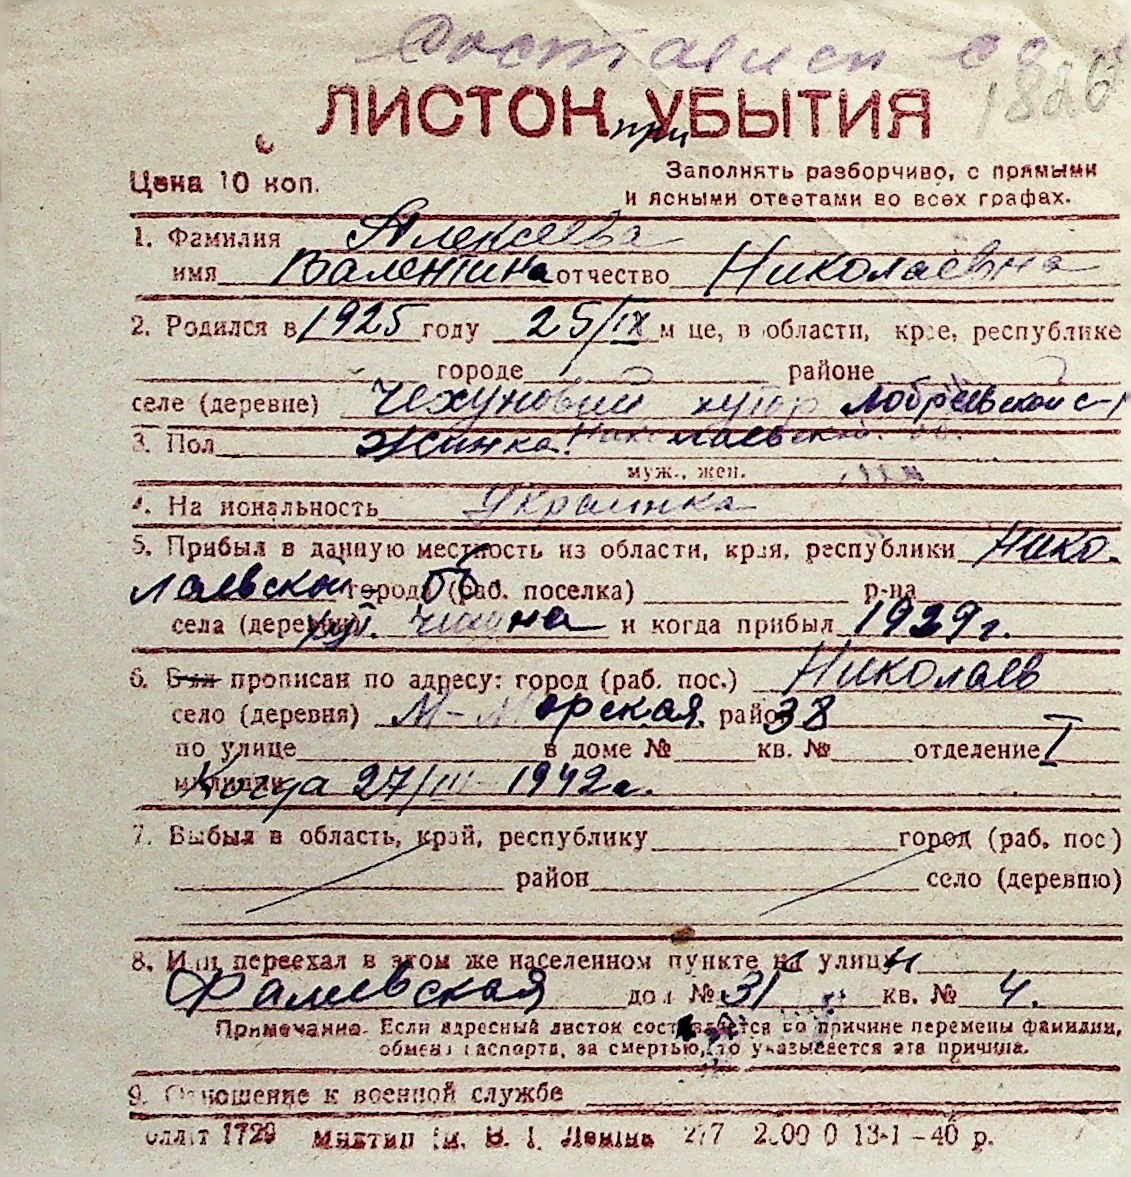 1826
ЛИСТОК УБЫТИЯ
при
Цена 10 коп.
Заполнять разборчиво, с прямыми
и ясными ответами во всех графах.
1. Фамилия Алексеева
имя Валентина отчество Николаевна
2. Родился в 1925 году 25/IX м це, в области, крае, республике
городе районе
селе (деревне) Чехуновый хутор
3. Пол Жинка. Николаевской об.
муж., жен.
4. Национальность Украинка
5. Прибыл в данную местность из области, края, республики Нико-
лаевской города об. (раб. поселка) р-на
села (деревни) хут. и когда прибыл 1929 г.
6. Был прописан по адресу: город (раб. пос.) Николаев
село (деревня) М-Морская район 38
по улице в доме № кв. № отделение I
милиции Когда 27/III 1942 г.
7. Выбыл в область, край, республику город (раб. пос)
район село (деревню)
8. Или переехал в этом же населенном пункте на улицу
Фалеевская дом № 31 кв. № 4.
Примечание. Если адресный листок составляется по причине перемены фамилии,
обмена паспорта, за смертью, то указывается эта причина.
9. Отношение к военной службе
1729 им. В. И. Ленина 13-1-40 р.